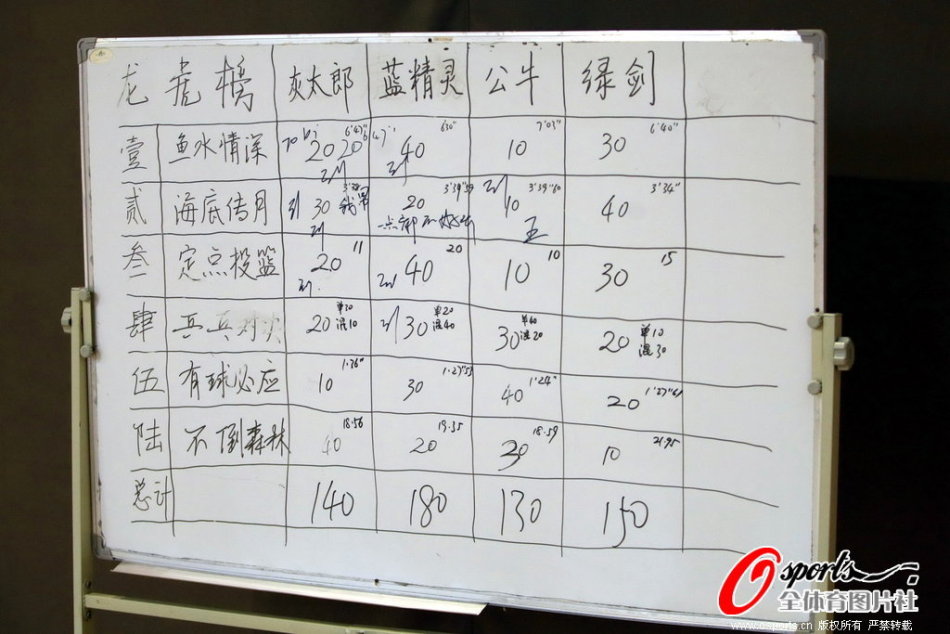 龙虎榜 灰太郎 蓝精灵 公牛 绿剑
壹 鱼水情深 20 20 6'47" 40 630" 10 7'03" 30 6'40"
贰 海底传月 30 20 3'39"59 10 3'39"60 40 3'34"
点部 王
叁 定点投篮 20 11 40 20 10 10 30 15
肆 乒乓对决 20 单30 混10 30 单20 混40 30 单40 混20 20 单10 混30
伍 有球必应 10 1'36" 30 1'27"53 40 1'24" 20 1'27"61
陆 不倒森林 40 18.56 20 19.35 30 18.59 10 21.95
总计 140 180 130 150
Osports
全体育图片社
www.osports.cn 版权所有 严禁转载